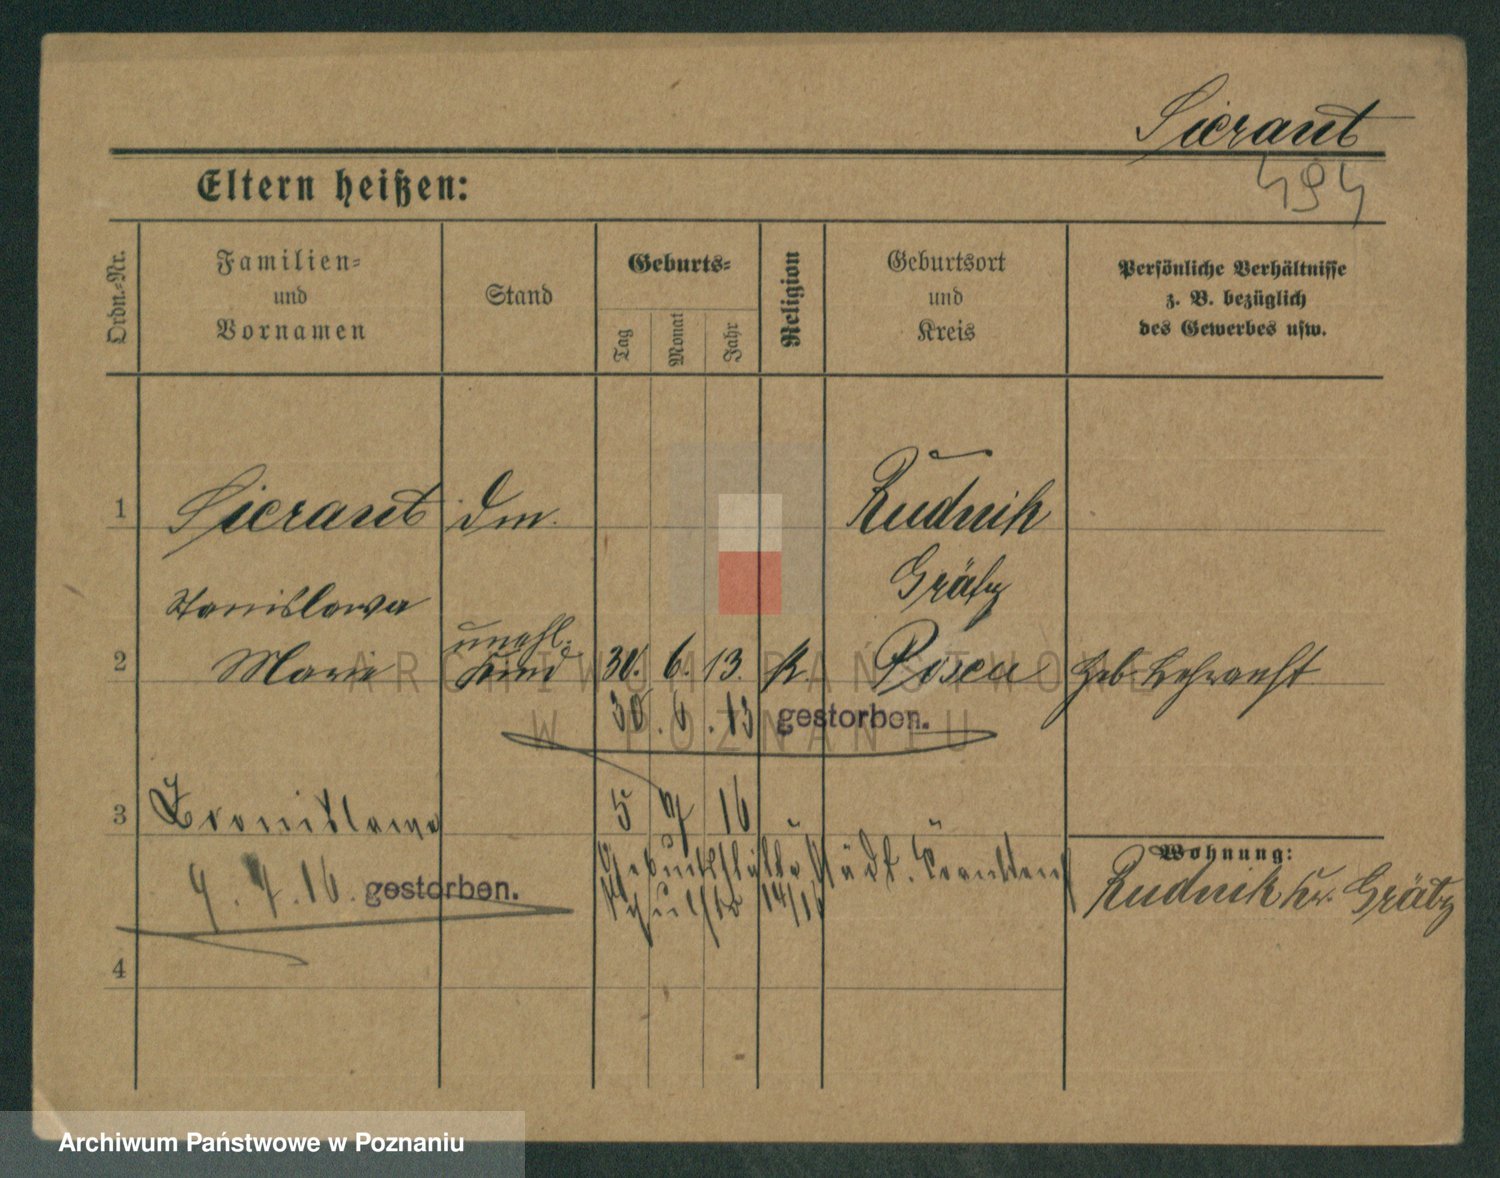 Sieraut
494
Eltern heißen:
Ordn.-Nr.
Familien-
und
Vornamen
Stand
Geburts-
Tag
Monat
Jahr
Religion
Geburtsort
und
Kreis
Persönliche Verhältnisse
z. B. bezüglich
des Gewerbes usw.
1 Sieraut Rudnik
Stanislawa Grätz
2 Marie unehl. Kind 30. 6. 13. K. Posen Heb. Lehranst.
30. 6. 13 gestorben.
3 Bronislawa 5 7 16
9. 7. 16. gestorben.
Städt. Krankenh
14/16
Wohnung:
Rudnik Kr. Grätz
4
ARCHIWUM PAŃSTWOWE
W POZNANIU
Archiwum Państwowe w Poznaniu